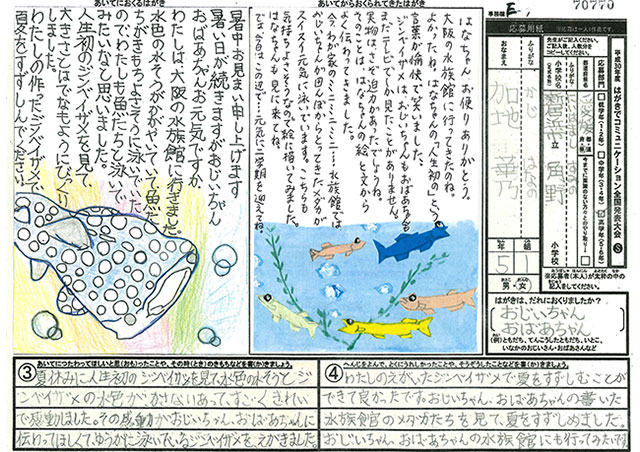 事務局
E
70770
あいてにおくるはがき
暑中お見まい申し上げます
暑い日が続きますがおじいちゃん
おばあちゃんお元気ですか。
わたしは、大阪の水族館に行きました。
水色の水そうがかがやいていて魚だ
ちがきもちよさそうに泳いでいた
のでわたしも魚たちと泳いで
みたいなと思いました。
人生初のジンベイザメを見て、
大きさとはでなもようにびっくり
しました。
わたしの作ったジンベイザメで、
夏をすずしんでください。
あいてからおくられてきたはがき
はなちゃん お便りありがとう。
大阪の水族館に行ってきたのね。
よかったね。はなちゃんの「人生初」という
言葉が愉快で笑いました。
ジンベイザメは、おじいちゃんもおばあちゃんも
まだテレビでしか見たことがありません。
実物は、さぞ迫力があったでしょうね。
そのことは、はなちゃんの絵と文から
よく伝わってきましたよ。
今、わが家のミニミニミニミニ水族館では、
おじいちゃんが田んぼからとってきたメダカが
スイスイと元気に泳いでいます。こちらも
気持ちよさそうなので絵に描いてみました。
はなちゃんも見に来てね。
では、今日はこの辺で…。元気に二学期を迎えてね。
平成30年度 はがきでコミュニケーション全国発表大会
応募用紙
先生がご記入ください。
ご記入後、人数分を
コピーしてください。
応募部門
低学年の部(1・2年)
中学年の部(3・4年)
高学年の部(5・6年)
小学校名
立
角野
小学校
おなまえ
かじ
はなの
加地
華乃
5年
1組
男・女
応募者(本人)が太枠の中の
記入をしてください。
はがきは、だれにおくりましたか?
おじいちゃん
おばあちゃん
(例)ともだち、てんこうしたともだち、いとこ、
いなかのおじいさん・おばあさんなど
③あいてにつたわってほしいと思(おも)ったことや、その時(とき)のきもちなどを書(か)きましょう。
夏休みに人生初のジンベイザメを見て、水色の水そうとジ
ンベイザメの水色がかさないあって、すごくきれい
で感動しました。その感動がおじいちゃん、おばあちゃんに
伝わってほしくて、ゆうがに泳いでいるジンベイザメをえがきました。
④へんじをよんで、とくにうれしかったことや、そうぞうしたことなどを書(か)きましょう。
わたしのえがいたジンベイザメで夏をすずしむことが
できて良かったです。おじいちゃん、おばあちゃんの書いた
水族館のメダカたちを見て、夏をすずしめました。
おじいちゃん、おばあちゃんの水族館にも行ってみたいです。